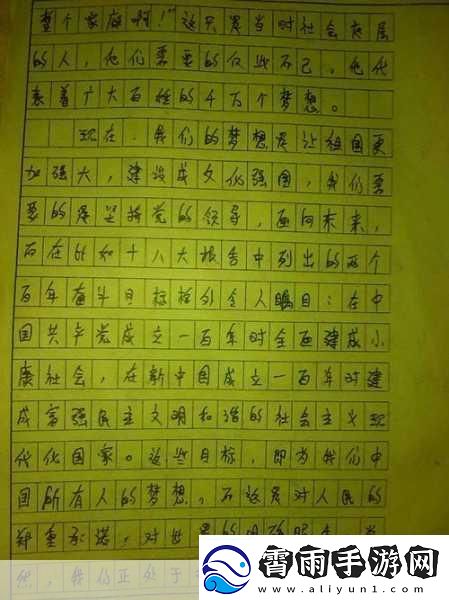 整个家庭啊！”这只是当时社会底层
的人，他们需要的仅此而已。他代
表着广大百姓的千万个梦想。
现在，我们的梦想是让祖国更
加强大，建设成文化强国，我们需
要的是坚持党的领导，面向未来，
而在此如十八大报告中列出的两个
百年奋斗目标格外令人瞩目：在中
国共产党成立一百年时全面建成小
康社会，在新中国成立一百年时建
成富强民主文明和谐的社会主义现
代化国家。这些目标，即为我们中
国所有人的梦想，不这是对人民的
郑重承诺，对世界的明确昭告。当
然，我们正处于
霄雨手游网
www.aliyun1.com